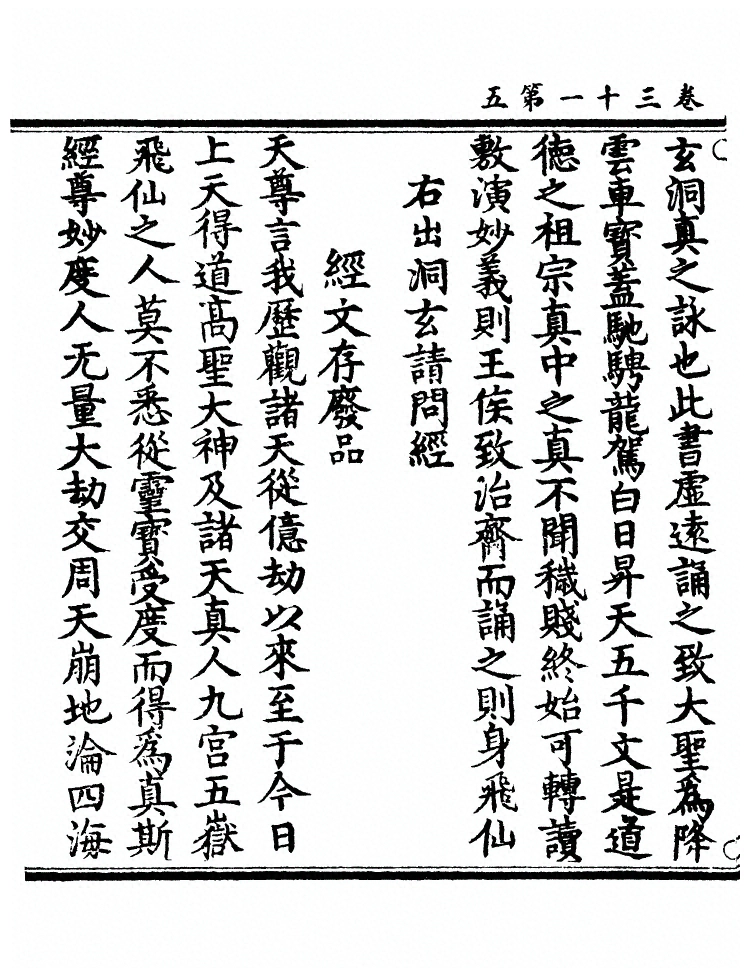 卷三十一第五
玄洞真之詠也此書虛遠誦之致大聖為降
雲車寶蓋馳騁龍駕白日昇天五千文是道
德之祖宗真中之真不聞穢賤終始可轉讀
敷演妙義則王侯致治齋而誦之則身飛仙
右出洞玄請問經
經文存廢品
天尊言我歷觀諸天從億劫以來至于今日
上天得道高聖大神及諸天真人九宮五嶽
飛仙之人莫不悉從靈寶受度而得為真斯
經尊妙度人无量大劫交周天崩地淪四海